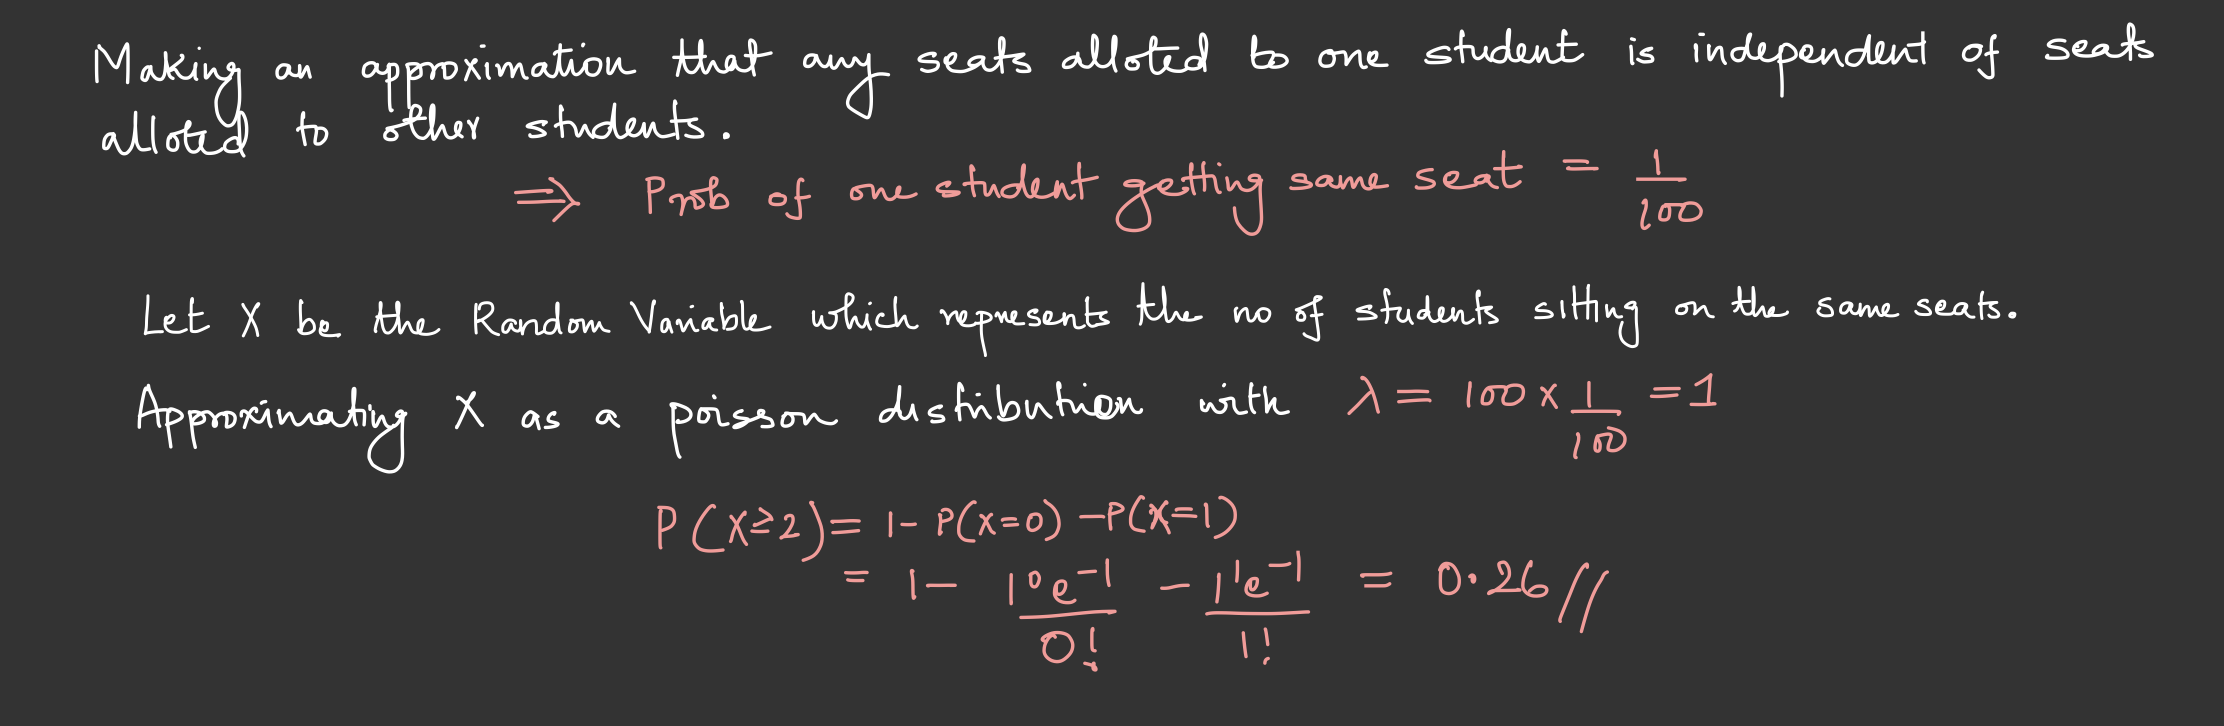 Making an approximation that any seats alloted to one student is independent of seats
alloted to other students.
⇒ Prob of one student getting same seat = 1/100
Let X be the Random Variable which represents the no of students sitting on the same seats.
Approximating X as a poisson distribution with λ = 100 × 1/100 = 1
P(X≥2) = 1 - P(X=0) - P(X=1)
= 1 - 1⁰e⁻¹/0! - 1¹e⁻¹/1! = 0.26//